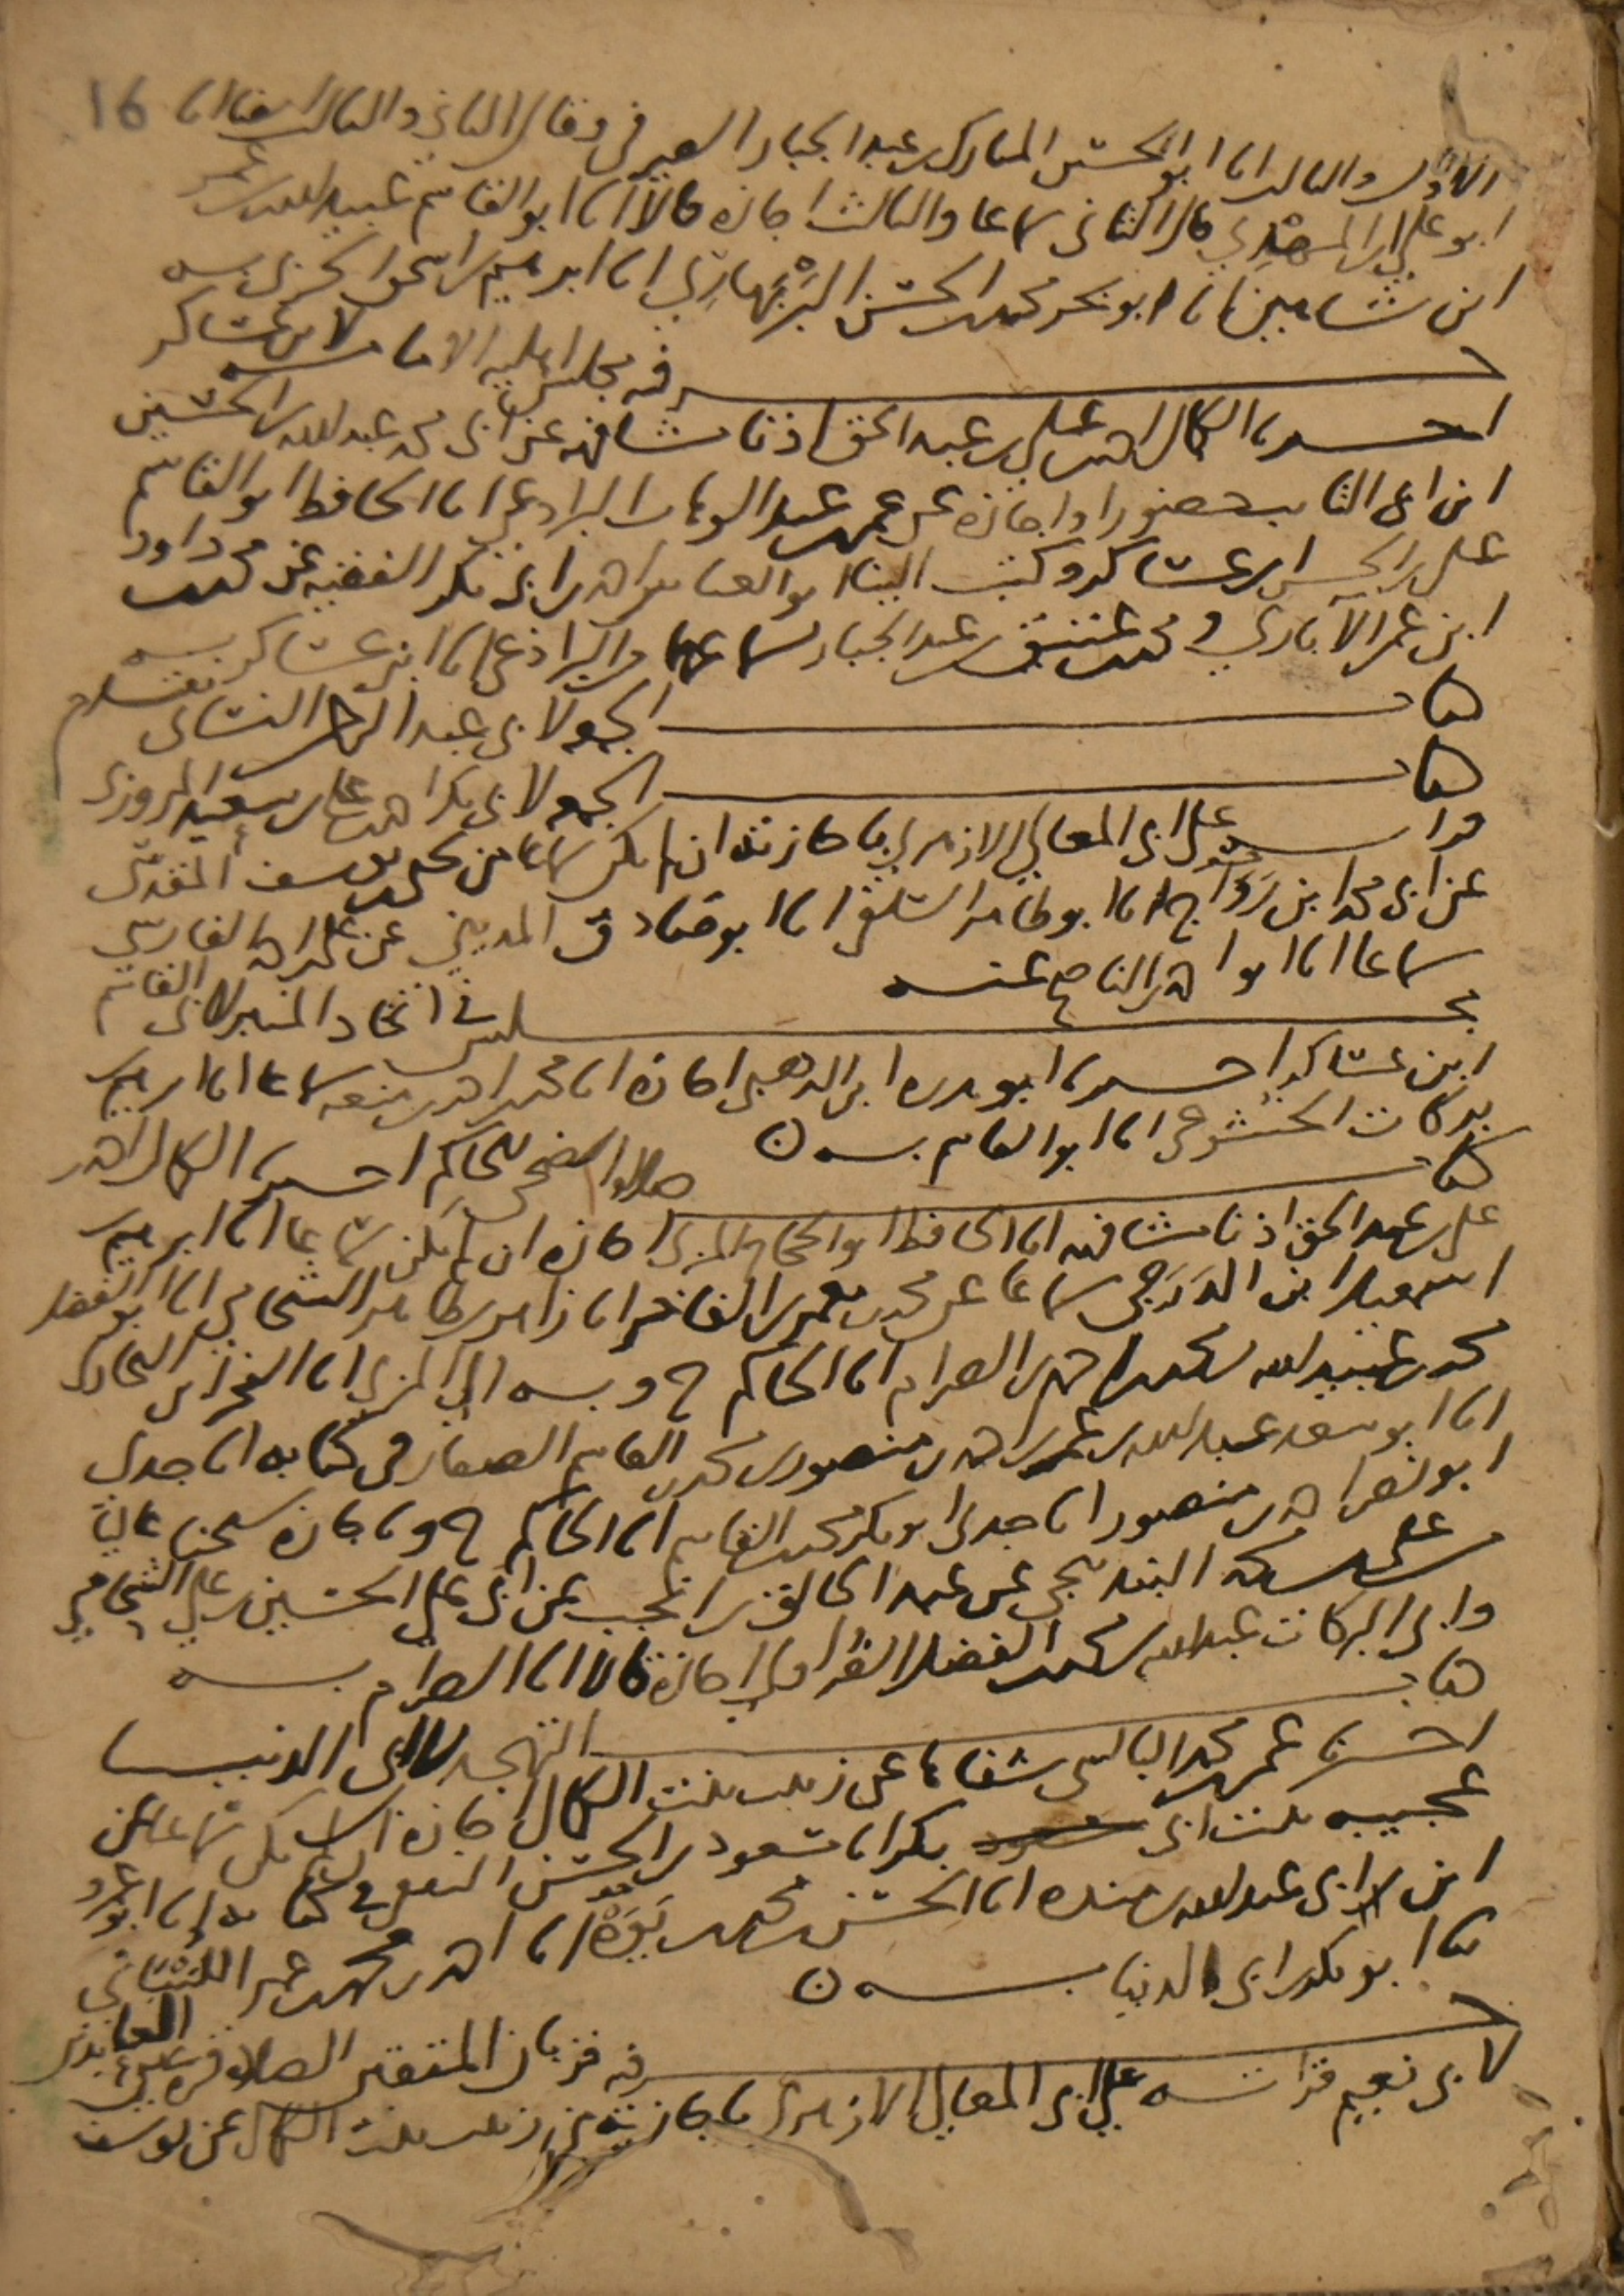 16
الاول والثالث انا ابو الحسين المبارك بن عبد الجبار الصيرفي وقال الثاني والثالث ايضا انا
ابو علي ابن المهدي قال الثاني سماعا والثالث اجازة قالا انا ابو القاسم عبيد الله بن عمر
ابن شاهين انا ابو بحر محمد بن الحسن البربهاري انا ابرهيم بن اسحق الحربي به
جزء فيه مجلس املية الامام لابن عساكر
اخبرنا الكمال احمد بن علي بن عبد الحق اذنا مشافهة عن ابي محمد عبد الله بن الحسين
ابن ابي التائب حضورا واجازة عن عمر بن عبد الوهاب البراذعي انا الحافظ ابو القاسم
علي بن الحسن ابن عساكر وكتب الينا ابو العباس احمد بن ابي بكر الفقيه عن محمد بن داود
ابن عمر الاباري ومحمد بن عتيق بن عبد الجبار سماعهما من البراذعي انا ابن عساكر به
كتاب الجمعة لابي عبد الرحمن النسائي تقدم
كتاب الجمعة لابي بكر احمد بن علي بن سعيد المروزي
قراته على ابي المعالي الازهري باجازته ان لم يكن سماعا من علي بن يوسف المقدسي
عن ابي محمد ابن رواج انا ابو طاهر السلفي انا ابو صادق المديني عن علي بن احمد الفارسي
سماعا انا ابو احمد بن الناصح عنه
مجلس في اتخاذ المنبر لابي القاسم
ابن عساكر اخبرنا ابو هريرة ابن الذهبي اجازة انا محمد بن احمد بن منعة سماعا انا ابرهيم بن
بركات الخشوعي انا ابو القاسم به ن
كتاب صلاة الضحى للحاكم اخبرنا الكمال احمد بن
علي بن عبد الحق اذنا مشافهة انا الحافظ ابو الحجاج المزي اجازة ان لم يكن سماعا انا ابرهيم بن
اسمعيل ابن الدرجي سماعا عن محمد بن معمر بن الفاخر انا زاهر بن طاهر الشحامي انا ابو الفضل
محمد بن عبيد الله بن محمد بن احمد بن الصرام انا الحاكم ح وبه الى المزي انا الفخر ابن البخاري
انا ابو سعد عبد الله بن عمر بن احمد بن منصور بن محمد بن القاسم الصفار في كتابه انا جدي
ابو نصر احمد بن منصور انا جدي ابو بكر محمد بن القاسم انا الحاكم ح وباجازة شيخنا عاليا
علي بن سكر البندنيجي عن عبد الخالق بن انجب عن ابي علي الحسين بن علي الشحامي
وابي البركات عبد الله بن محمد بن الفضل الفراوي اجازة قالا انا الصرام به
كتاب التهجد لابن ابي الدنيا
اخبرنا عمر بن محمد البالسي شفاها عن زينب بنت الكمال اجازة ان لم يكن سماعا عن
عجيبة بنت ابي بكر انا مسعود بن الحسن الثقفي في كتابه انا ابو عمرو
ابن ابي عبد الله بن منده انا الحسن بن محمد بن يوه انا احمد بن محمد بن عمر اللنباني
ثنا ابو بكر بن ابي الدنيا به ن
جزء فيه قربان المتقين الصلاة قرة عين العابدين
لابي نعيم قراته على ابي المعالي الازهري باجازته من زينب بنت الكمال عن يوسف